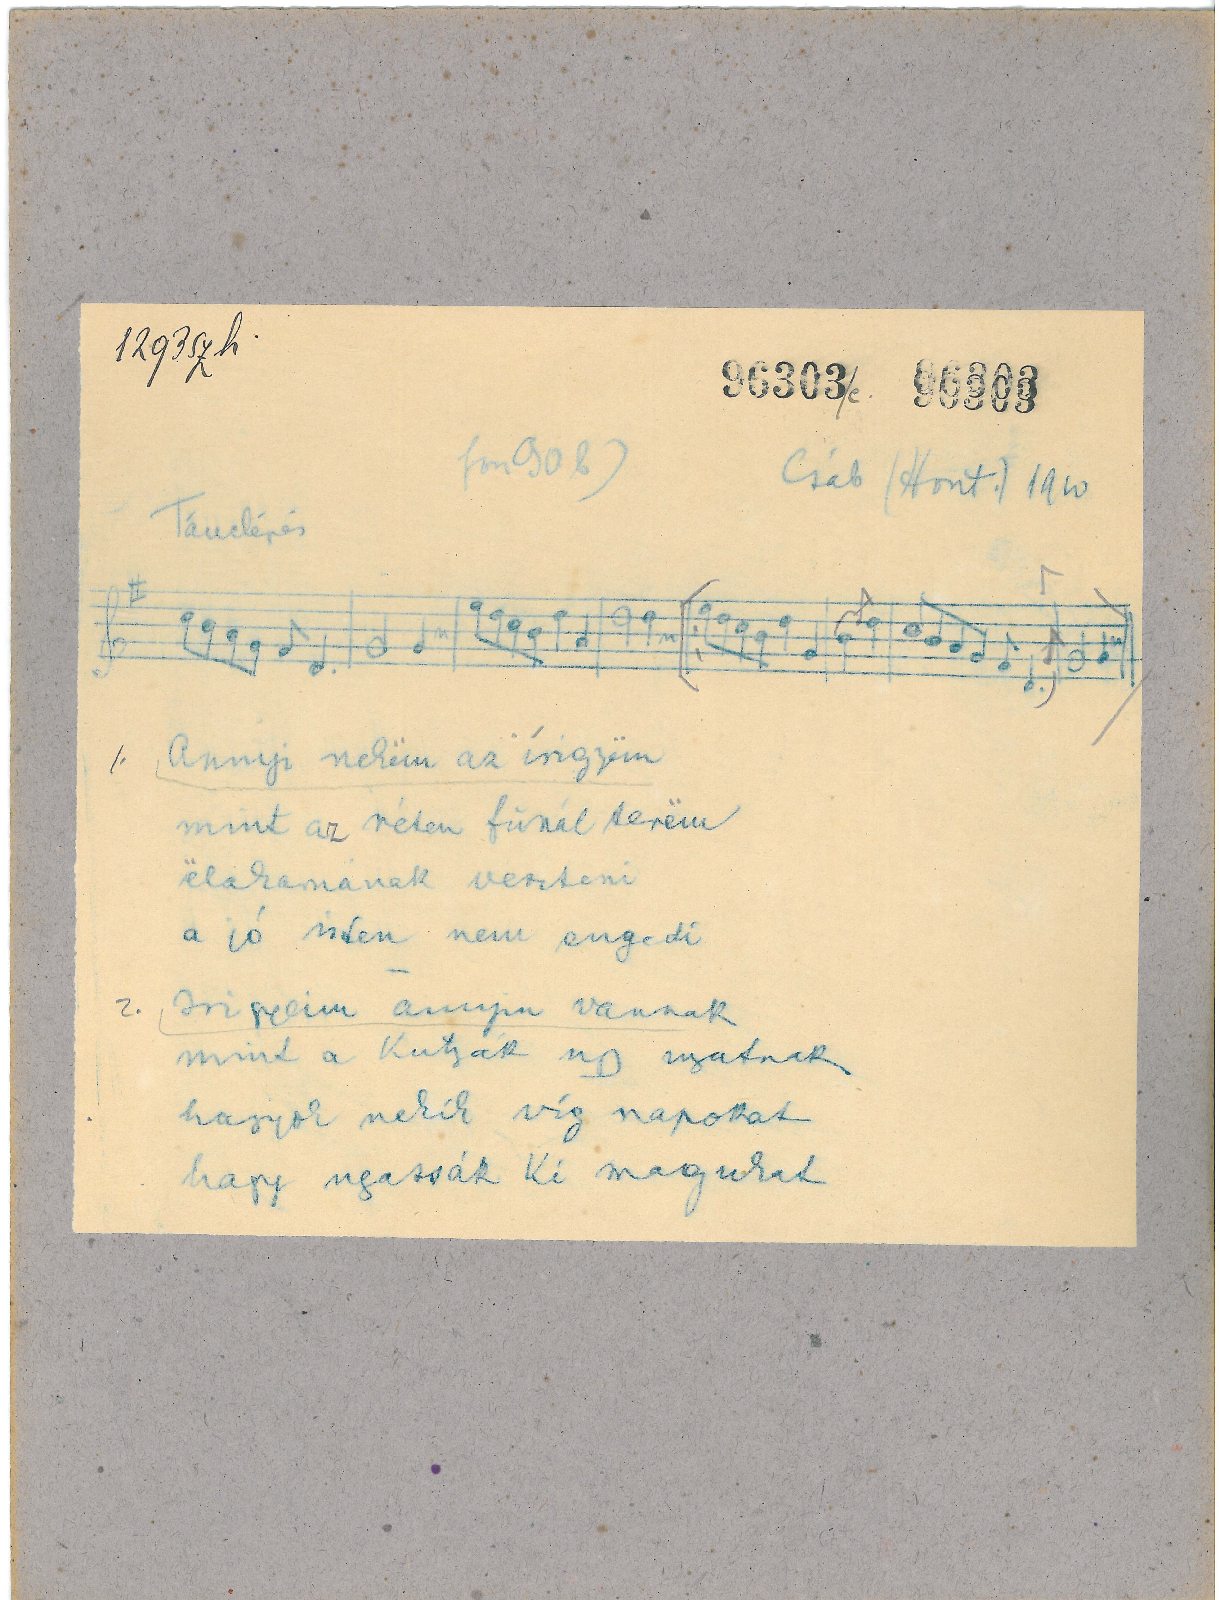 1293 szh.
96303/c. 96303
fon 90 b)
Csáb (Hont.) 1910
Tánclépés
1. Annyi nekëm az írigyëm
mint az réten fűszál terëm
ëlakarnának veszteni
a jó isten nem engedi
2. Irigyeim annyin vannak
mint a Kutyák úgy ugatnak
hagyok nekik víg napokat
hagy ugassák Ki magukat